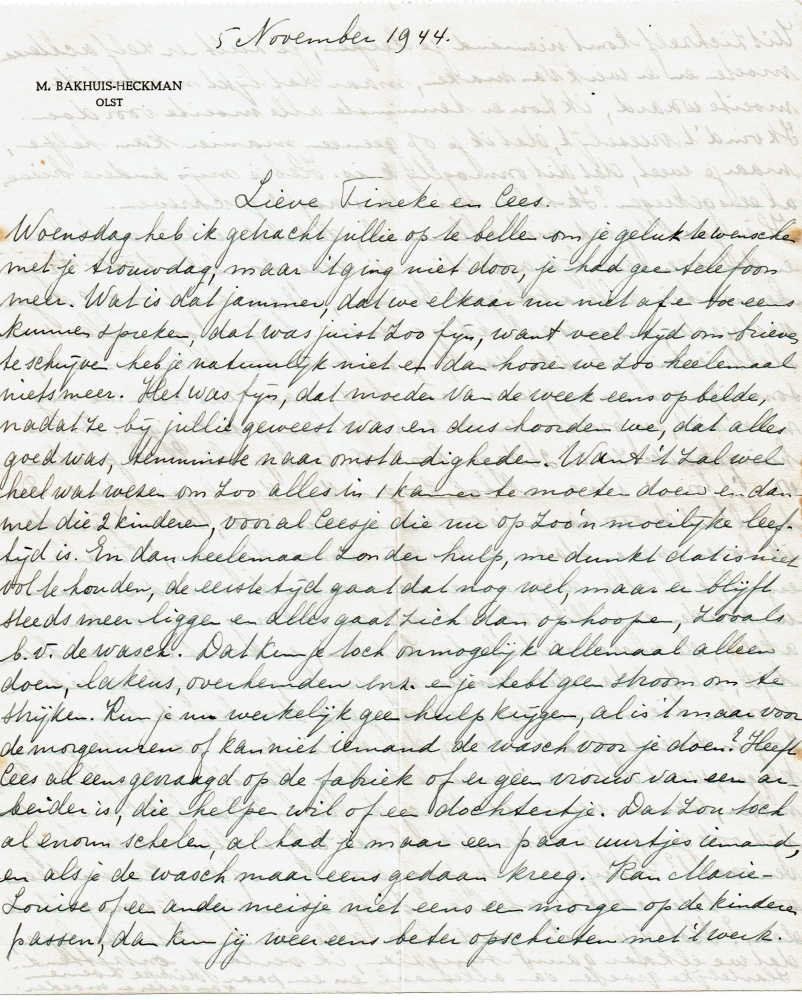 5 November 1944.
M. BAKHUIS-HECKMAN
OLST
Lieve Tineke en Cees.
Woensdag heb ik getracht jullie op te bellen om je geluk te wensche
met je trouwdag, maar 't ging niet door, je had gee telefoon
meer. Wat is dat jammer, dat we elkaar nu niet af e toe eens
kunnen spreken, dat was juist zoo fijn, want veel tijd om brieve
te schrijve heb je natuurlijk niet en dan hoore we zoo heelemaal
niets meer. Het was fijn, dat moeder van de week eens opbelde,
nadat ze bij jullie geweest was en dus hoorden we, dat alles
goed was, tenminste naar omstandigheden. Want 't zal wel
heel wat wezen om zoo alles in 1 kamer te moeten doen en dan
met die 2 kinderen, vooral Ceesje die nu op zoo'n moeilijke leef-
tijd is. En dan heelemaal zonder hulp, me dunkt dat is niet
vol te houden, de eerste tijd gaat dat nog wel, maar er blijft
steeds meer liggen en alles gaat zich dan ophoope, zooals
b.v. de wasch. Dat kun je toch onmogelijk allemaal alleen
doen, lakens, overhemden enz. en je hebt geen stroom om te
strijken. Kun je nu werkelijk gee hulp krijgen, al is 't maar voor
de morgenuren of kan niet iemand de wasch voor je doen? Heeft
Cees al eens gevraagd op de fabriek of er geen vrouw van een ar-
beider is, die helpen wil of een dochtertje. Dat zou toch
al enorm schelen, al had je maar een paar uurtjes iemand,
en als je de wasch maar eens gedaan kreeg. Kan Marie-
Louise of ee ander meisje niet eens ee morge op de kindere
passen, dan kun jij weer eens beter opschieten met 't werk.